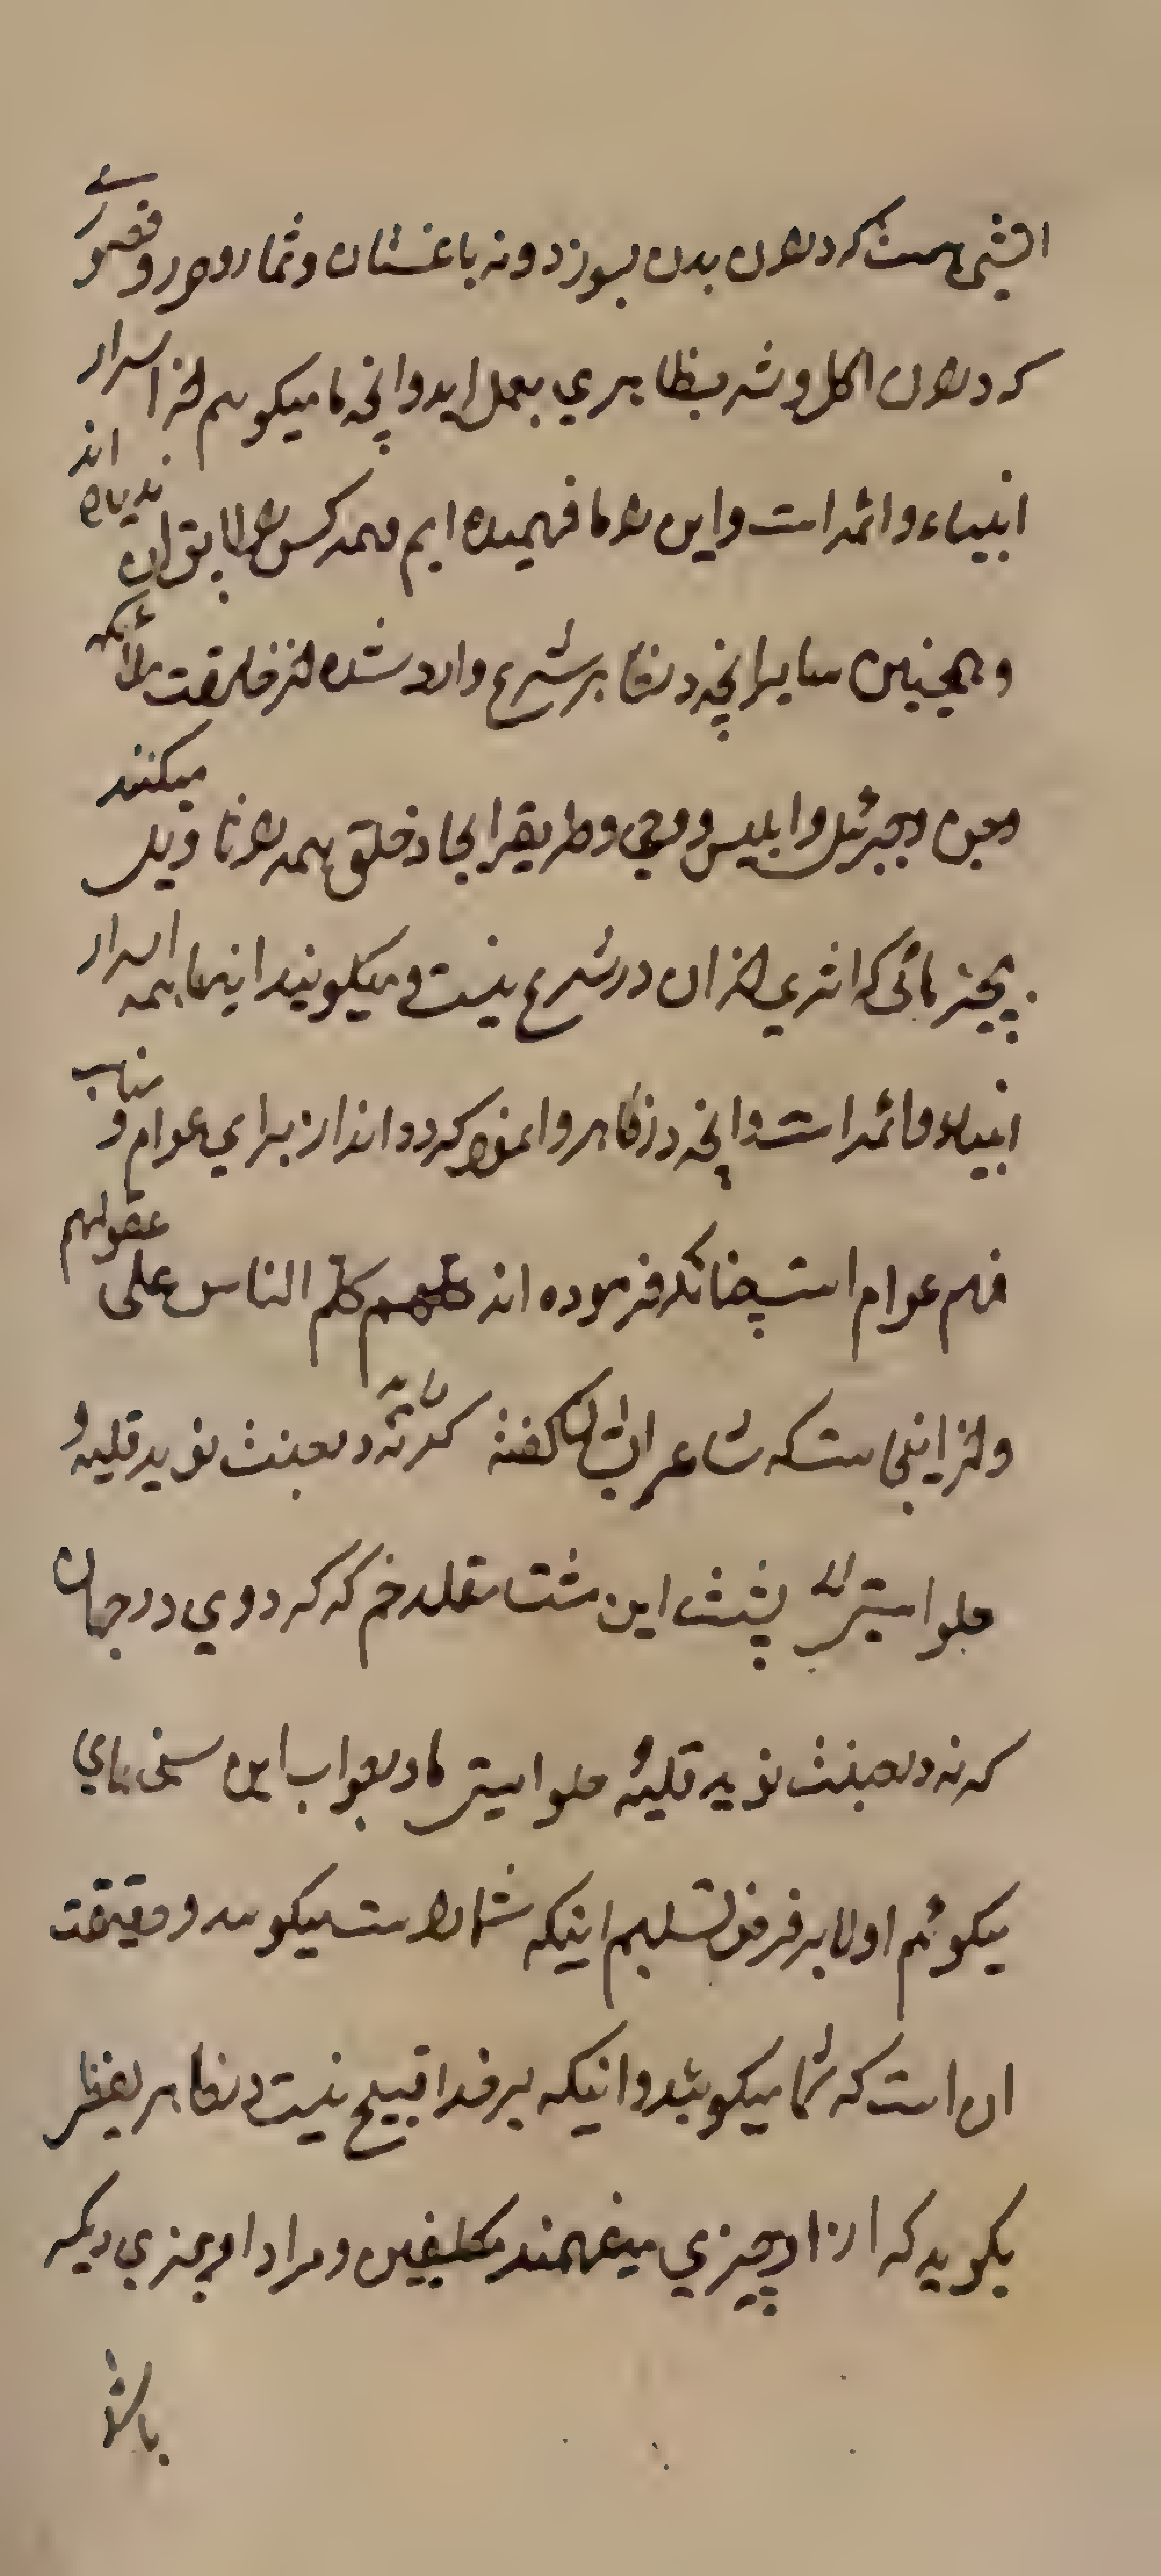 اتشی هست که در ان بدن بسوزد و نه باغستان و ثمار و حور و قصوری
که در ان اکل و شرب ظاهری بعمل اید و انچه ما میکویم از اسرار
انبیاء و ائمه است و این را ما فهمیده ایم و همه کس را لایق ان ندیده اند
و همچنین سایر انچه در ظاهر شرع وارد شده از خلقت ملائکه
و جن و جبرئیل و ابلیس و وحی و طریقه ایجاد خلق همه را تاویل میکنند
بچیز هائی که اثری از ان در شرع نیست و میکویند اینها همه اسرار
انبیاء و ائمه است و انچه در ظاهر وانمود کرده اند از برای عوام و مناسب
فهم عوام است چنانکه فرموده اند کلم الناس علی عقولهم
و از اینجاست که شاعر ایشان کفته کرنه در جنت نوید قلیه و
حلواستی پشت این مشت مقلد خم که کردی در جهان
که نه در جنت نوید قلیه و حلواستی ما در جواب این سخن های
میکوئیم اولا بر فرض تسلیم اینکه شما راست میکوئید و حقیقت
ان است که شما میکوئید و اینکه بر خدا قبیح نیست در ظاهر لفظی
بکوید که از او چیزی میفهمند مکلفین و مراد او چیزی دیکر
باشد